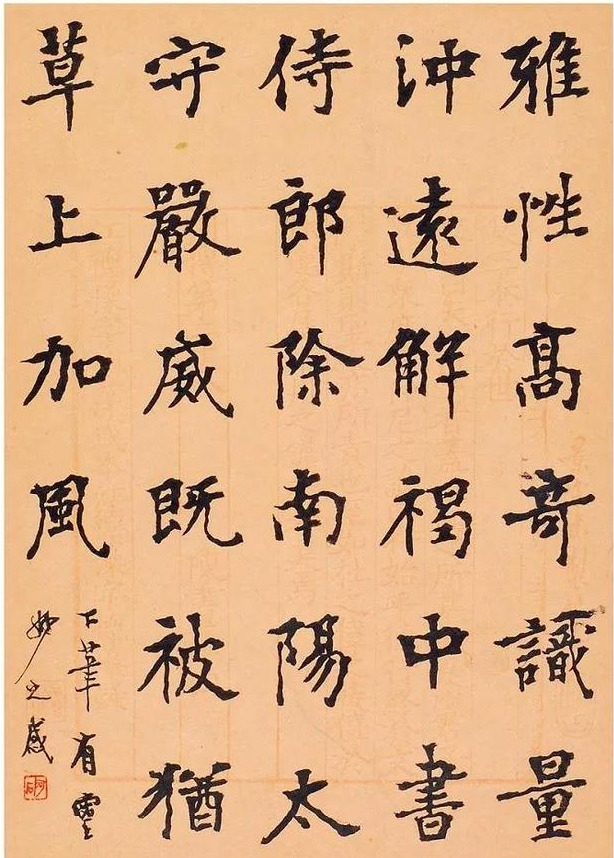 雅性高奇識量
沖遠解褐中書
侍郎除南陽太
守嚴威既被猶
草上加風
有靈
妙之